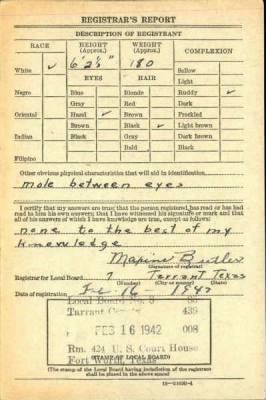 REGISTRAR'S REPORT
DESCRIPTION OF REGISTRANT
RACE HEIGHT (Approx.) WEIGHT (Approx.) COMPLEXION
White ✓ 6' 2½" 180 Sallow
EYES HAIR Light
Negro Blue Blonde Ruddy ✓
Gray Red Dark
Oriental Hazel ✓ Brown Freckled
Brown Black ✓ Light brown
Indian Black Gray Dark brown
Bald Black
Filipino
Other obvious physical characteristics that will aid in identification
mole between eyes
I certify that my answers are true; that the person registered has read or has had
read to him his own answers; that I have witnessed his signature or mark and that
all of his answers of which I have knowledge are true, except as follows:
none to the best of my
knowledge
Butler
(Signature of registrar)
Registrar for Local Board 7 Tarrant Texas
(Number) (City or county) (State)
Date of registration 16 - 1942
Local Board No. 8 85
Tarrant 439
FEB 16 1942 008
Rm. 424 U. S. Court House
Fort Worth, Texas
(STAMP OF LOCAL BOARD)
(The stamp of the Local Board having jurisdiction of the registrant
shall be placed in the above space)